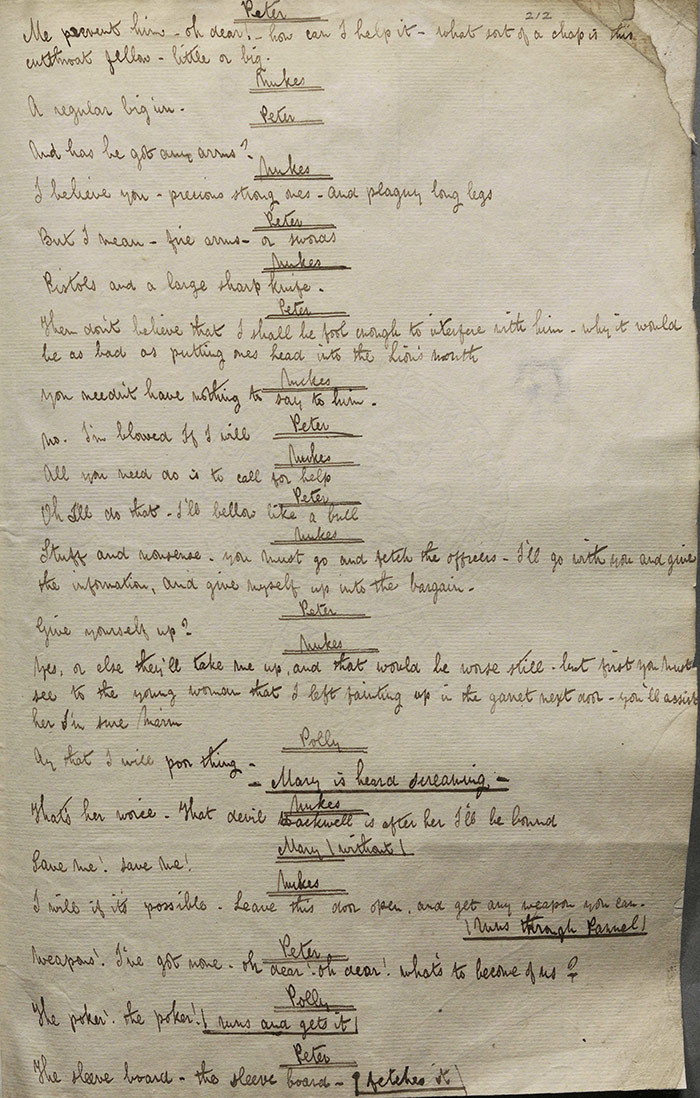 Peter
212
Me prevent him - oh dear! - how can I help it - what sort of a chap is this
cutthroat fellow - little or big.
Nukes
A regular big'un.
Peter
And has he got any arms?
Nukes
I believe you - precious strong ones - and plaguy long legs
Peter
But I mean - fire arms - or swords
Nukes
Pistols and a large sharp knife.
Peter
Then don't believe that I shall be fool enough to interfere with him - why it would
be as bad as putting ones head into the Lion's mouth
Nukes
You needn't have nothing to say to him.
Peter
No. I'm blowed If I will
Nukes
All you need do is to call for help
Peter
Oh I'll do that - I'll bellow like a bull
Nukes
Stuff and nonsense - you must go and fetch the officers - I'll go with you and give
the information, and give myself up into the bargain.
Peter
Give yourself up?
Nukes
Yes, or else they'll take me up, and that would be worse still - but first you must
see to the young woman that I left fainting up in the garret next door - you'll assist
her I'm sure Marm
Polly
Ay that I will poor thing -
- Mary is heard screaming. -
Nukes
That's her voice - That devil Brackwell is after her I'll be bound
Mary (without)
Save me! save me!
Nukes
I will if it's possible - Leave this door open, and get any weapon you can.
(runs through Pannel)
Peter
Weapons! I've got none - oh dear! oh dear! what's to become of us?
Polly
The poker! the poker! (runs and gets it)
Peter
The sleeve board - the sleeve board - (fetches it)